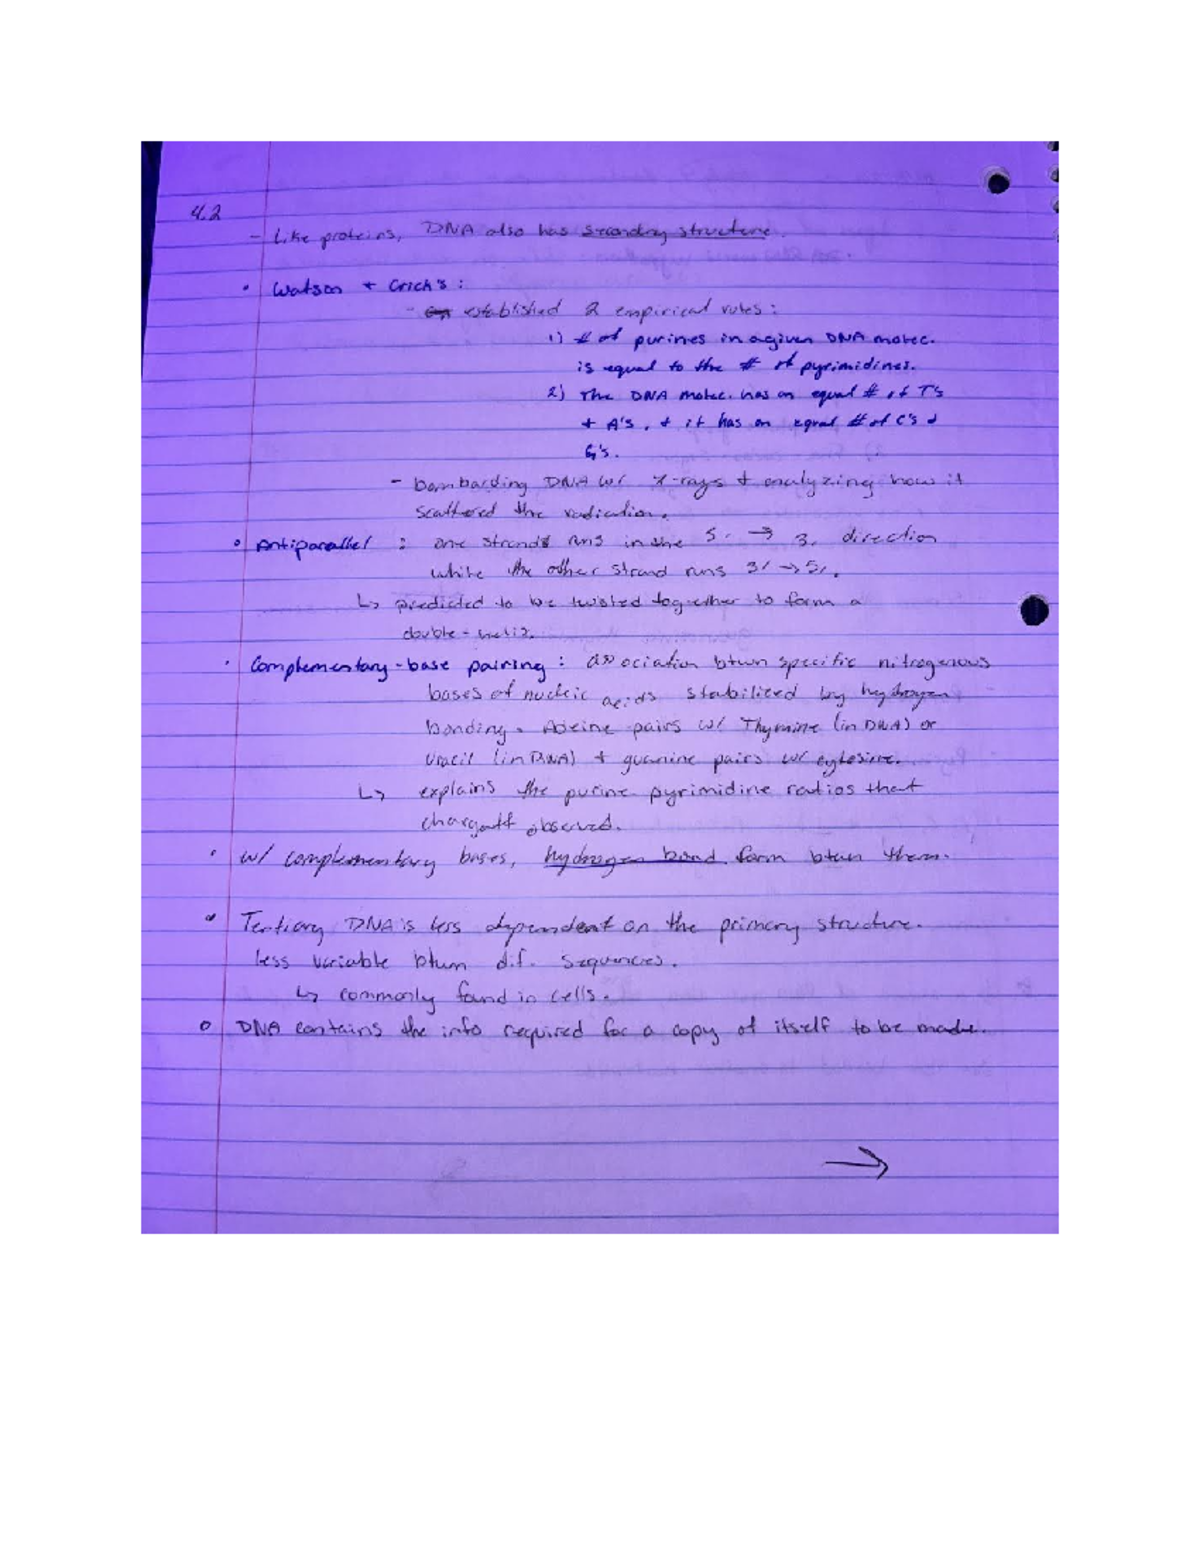 4.2
- Like proteins, DNA also has secondary structure.
• Watson + Crick's :
- established 2 empirical rules :
1) # of purines in a given DNA molec.
is equal to the # of pyrimidines.
2) The DNA molec. has an equal # of T's
+ A's, + it has an equal # of C's &
G's.
- bombarding DNA w/ X-rays + analyzing how it
scattered the radiation.
• Antiparallel : one strands runs in the 5' → 3' direction
while the other strand runs 3' → 5'.
↳ predicted to be twisted together to form a
double-helix.
• Complementary-base pairing : association btwn specific nitrogenous
bases of nucleic acids stabilized by hydrogen
bonding. Adeine pairs w/ Thymine (in DNA) or
Uracil (in RNA) + guanine pairs w/ cytosine.
↳ explains the purine-pyrimidine ratios that
chargaff observed.
• w/ complementary bases, hydrogen bond form btwn them.
• Tertiary DNA is less dependent on the primary structure.
less variable btwn dif. sequences.
↳ commonly found in cells.
• DNA contains the info required for a copy of itself to be made.
→